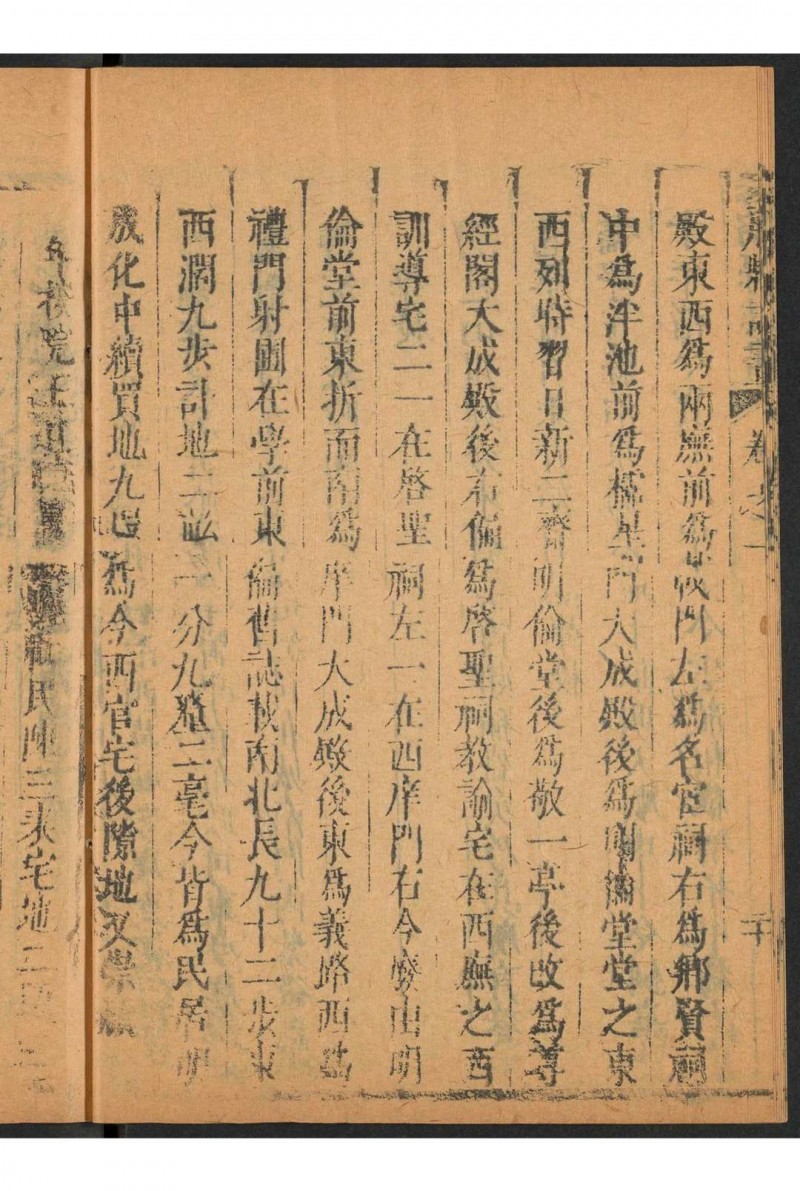 卷之一
二十
殿東西爲兩廡前爲戟門左爲名宦祠右爲鄉賢祠
中爲泮池前爲櫺星門大成殿後爲明倫堂堂之東
西列時習日新二齋明倫堂後爲敬一亭後改爲尊
經閣大成殿後右偏爲啓聖祠教諭宅在西廡之西
訓導宅二一在啓聖祠左一在西庠門右今廢由明
倫堂前東折而南爲庠門大成殿後東爲義路西爲
禮門射圃在學前東偏舊誌載南北長九十二步東
西濶九步計地二畝一分九釐二毫今皆爲民居明
成化中續買地九
爲今西官宅後隙地又
院
氏陳三 宅地二